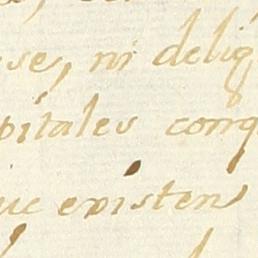 se, ni deliq
pitales conq
ue existen